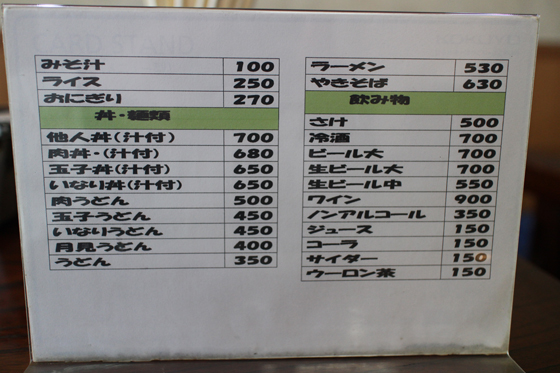 みそ汁 100
ライス 250
おにぎり 270
丼・麺類
他人丼(汁付) 700
肉丼・(汁付) 680
玉子丼(汁付) 650
いなり丼(汁付) 650
肉うどん 500
玉子うどん 450
いなりうどん 450
月見うどん 400
うどん 350
ラーメン 530
やきそば 630
飲み物
さけ 500
冷酒 700
ビール大 700
生ビール大 700
生ビール中 550
ワイン 900
ノンアルコール 350
ジュース 150
コーラ 150
サイダー 150
ウーロン茶 150